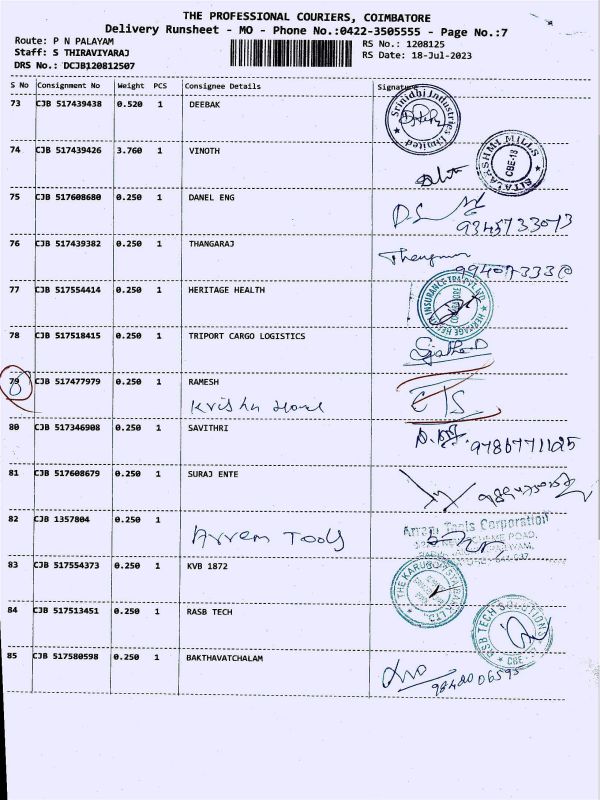 THE PROFESSIONAL COURIERS, COIMBATORE
Delivery Runsheet - MO - Phone No.:0422-3505555 - Page No.:7
Route: P N PALAYAM
RS No.: 1208125
Staff: S THIRAVIYARAJ
RS Date: 18-Jul-2023
DRS No.: DCJB120812507
S No Consignment No Weight PCS Consignee Details Signature
73 CJB 517439438 0.520 1 DEEBAK
Srinidhi Industries Limited
74 CJB 517439426 3.760 1 VINOTH
SITALAKSHMI MILLS
CBE-18
75 CJB 517608680 0.250 1 DANEL ENG
D.S
9345733073
76 CJB 517439382 0.250 1 THANGARAJ
77 CJB 517554414 0.250 1 HERITAGE HEALTH
78 CJB 517518415 0.250 1 TRIPORT CARGO LOGISTICS
79 CJB 517477979 0.250 1 RAMESH
Krishn
80 CJB 517346908 0.250 1 SAVITHRI
81 CJB 517608679 0.250 1 SURAJ ENTE
82 CJB 1357804 0.250 1
Arrem Tools
Arram Tools Corporation
83 CJB 517554373 0.250 1 KVB 1872
84 CJB 517513451 0.250 1 RASB TECH
RASB TECH SOLUTIONS
CBE
85 CJB 517580598 0.250 1 BAKTHAVATCHALAM